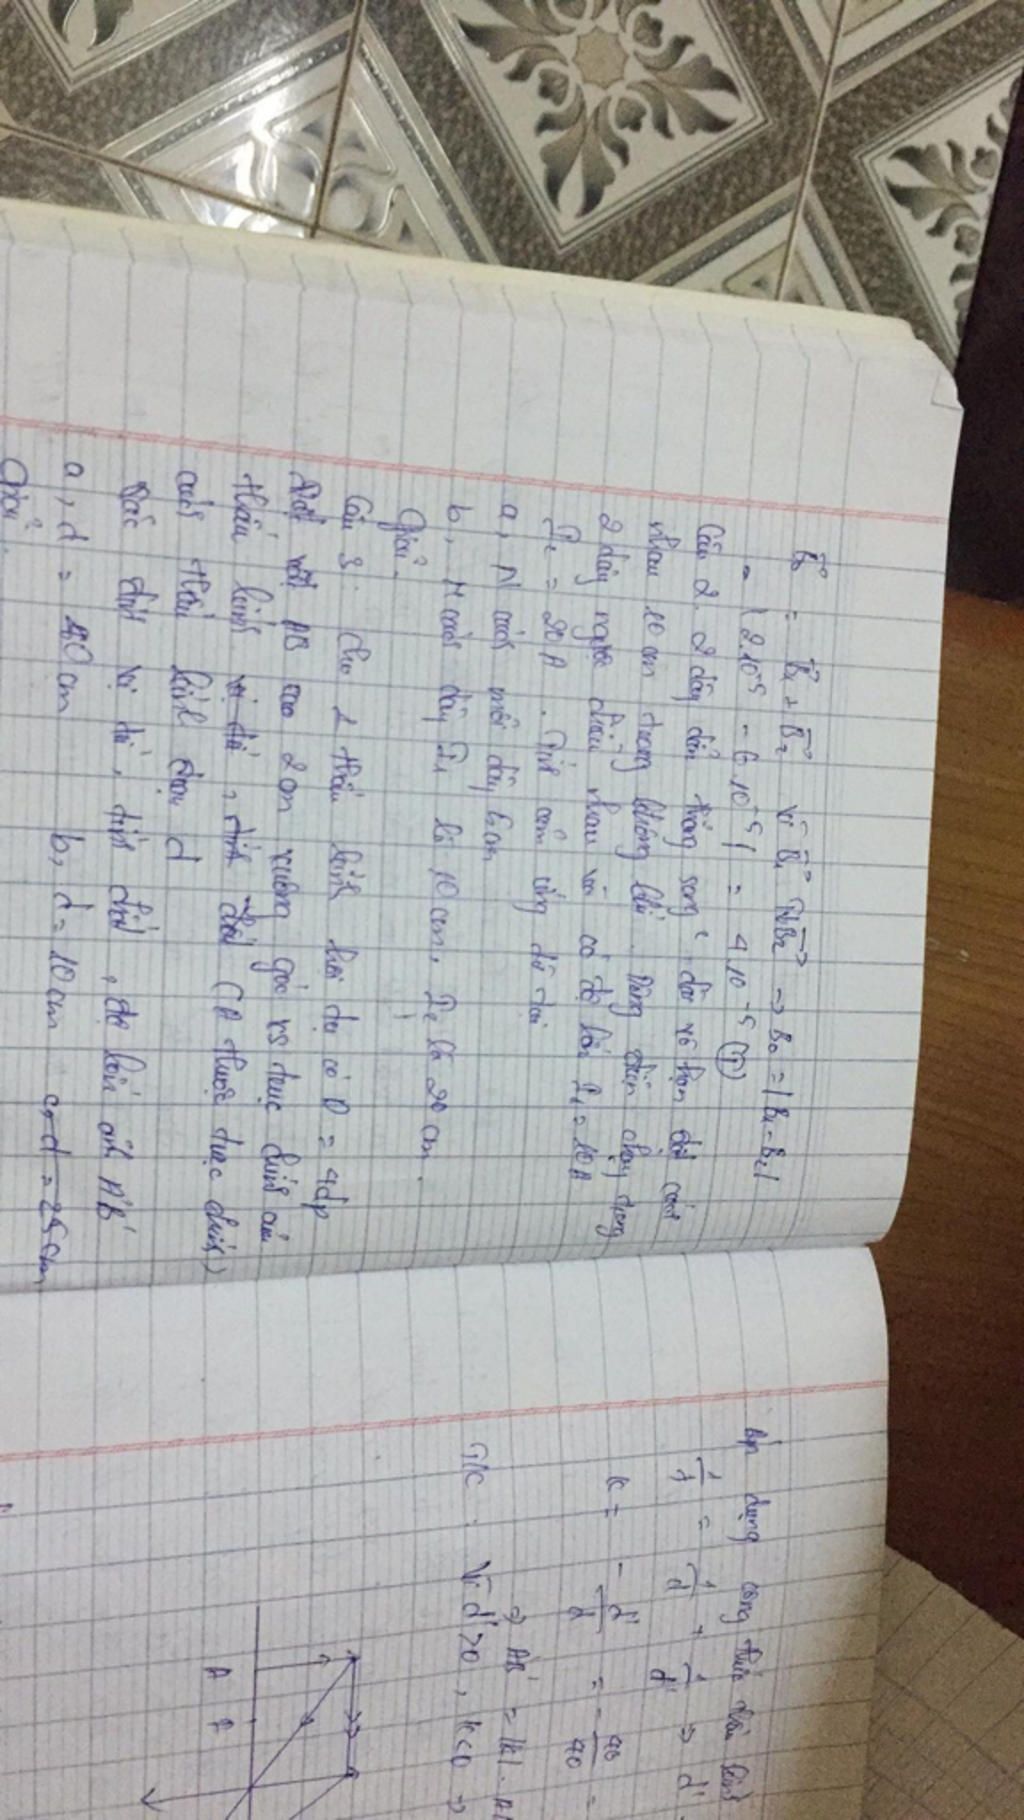 B₀ = B₁ + B₂ vì B₁ ↑↓ B₂ → B₀ = |B₁ - B₂|
= |2.10⁻⁵ - 6.10⁻⁵| = 4.10⁻⁵ (T)
Câu 2. 2 dây dẫn thẳng song², dài vô hạn đặt cách
nhau 10 cm trong không khí. Dòng điện chạy trong
2 dây ngược chiều nhau và có độ lớn I₁ = 10A
I₂ = 20A. Tính cảm ứng từ tại
a, N cách mỗi dây 5 cm
b, M cách dây I₁ là 10 cm, I₂ là 20 cm.
Giải.
Câu 3: Cho 1 thấu kính hội tụ có D = 4dp
Đặt vật AB cao 2cm vuông góc vs trục chính của
thấu kính, (A thuộc trục chính)
cách thấu kính đoạn d
Xác định vị trí, tính chất, độ lớn ảnh A'B'
a, d = 40 cm b, d = 10cm c, d = 25 cm
Giải.
Áp dụng công thức thấu kính
1/f = 1/d + 1/d' ⇒ d'
k = - d'/d = -
⇒ A'B' = |k| . A
T/c: Vì d' > 0, k < 0 →
A F